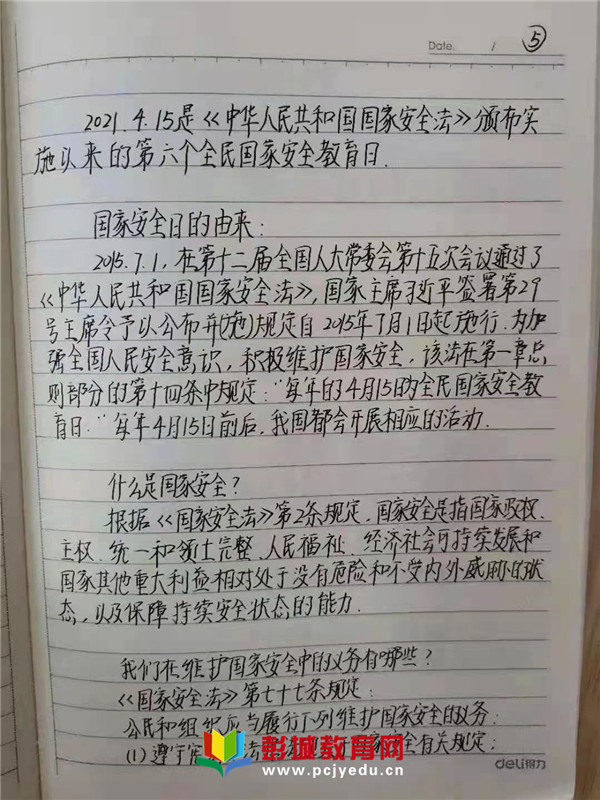 Date. /
⑤
2021.4.15是《中华人民共和国国家安全法》颁布实
施以来的第六个全民国家安全教育日.
国家安全日的由来:
2015.7.1,在第十二届全国人大常委会第十五次会议通过了
《中华人民共和国国家安全法》,国家主席习近平签署第29
号主席令予以公布并(施)规定自2015年7月1日起施行.为加
强全国人民安全意识,积极维护国家安全,该法在第一章总
则部分的第十四条中规定:"每年的4月15日为全民国家安全教
育日."每年4月15日前后,我国都会开展相应的活动.
什么是国家安全?
根据《国家安全法》第2条规定,国家安全是指国家政权、
主权、统一和领土完整、人民福祉、经济社会可持续发展和
国家其他重大利益相对处于没有危险和不受内外威胁的状
态,以及保障持续安全状态的能力.
我们在维护国家安全中的义务有哪些?
《国家安全法》第七十七条规定:
公民和组织应当履行下列维护国家安全的义务:
(1)遵守宪法 国家安全有关规定;
彭城教育网
www.pcjyedu.cn
deli得力